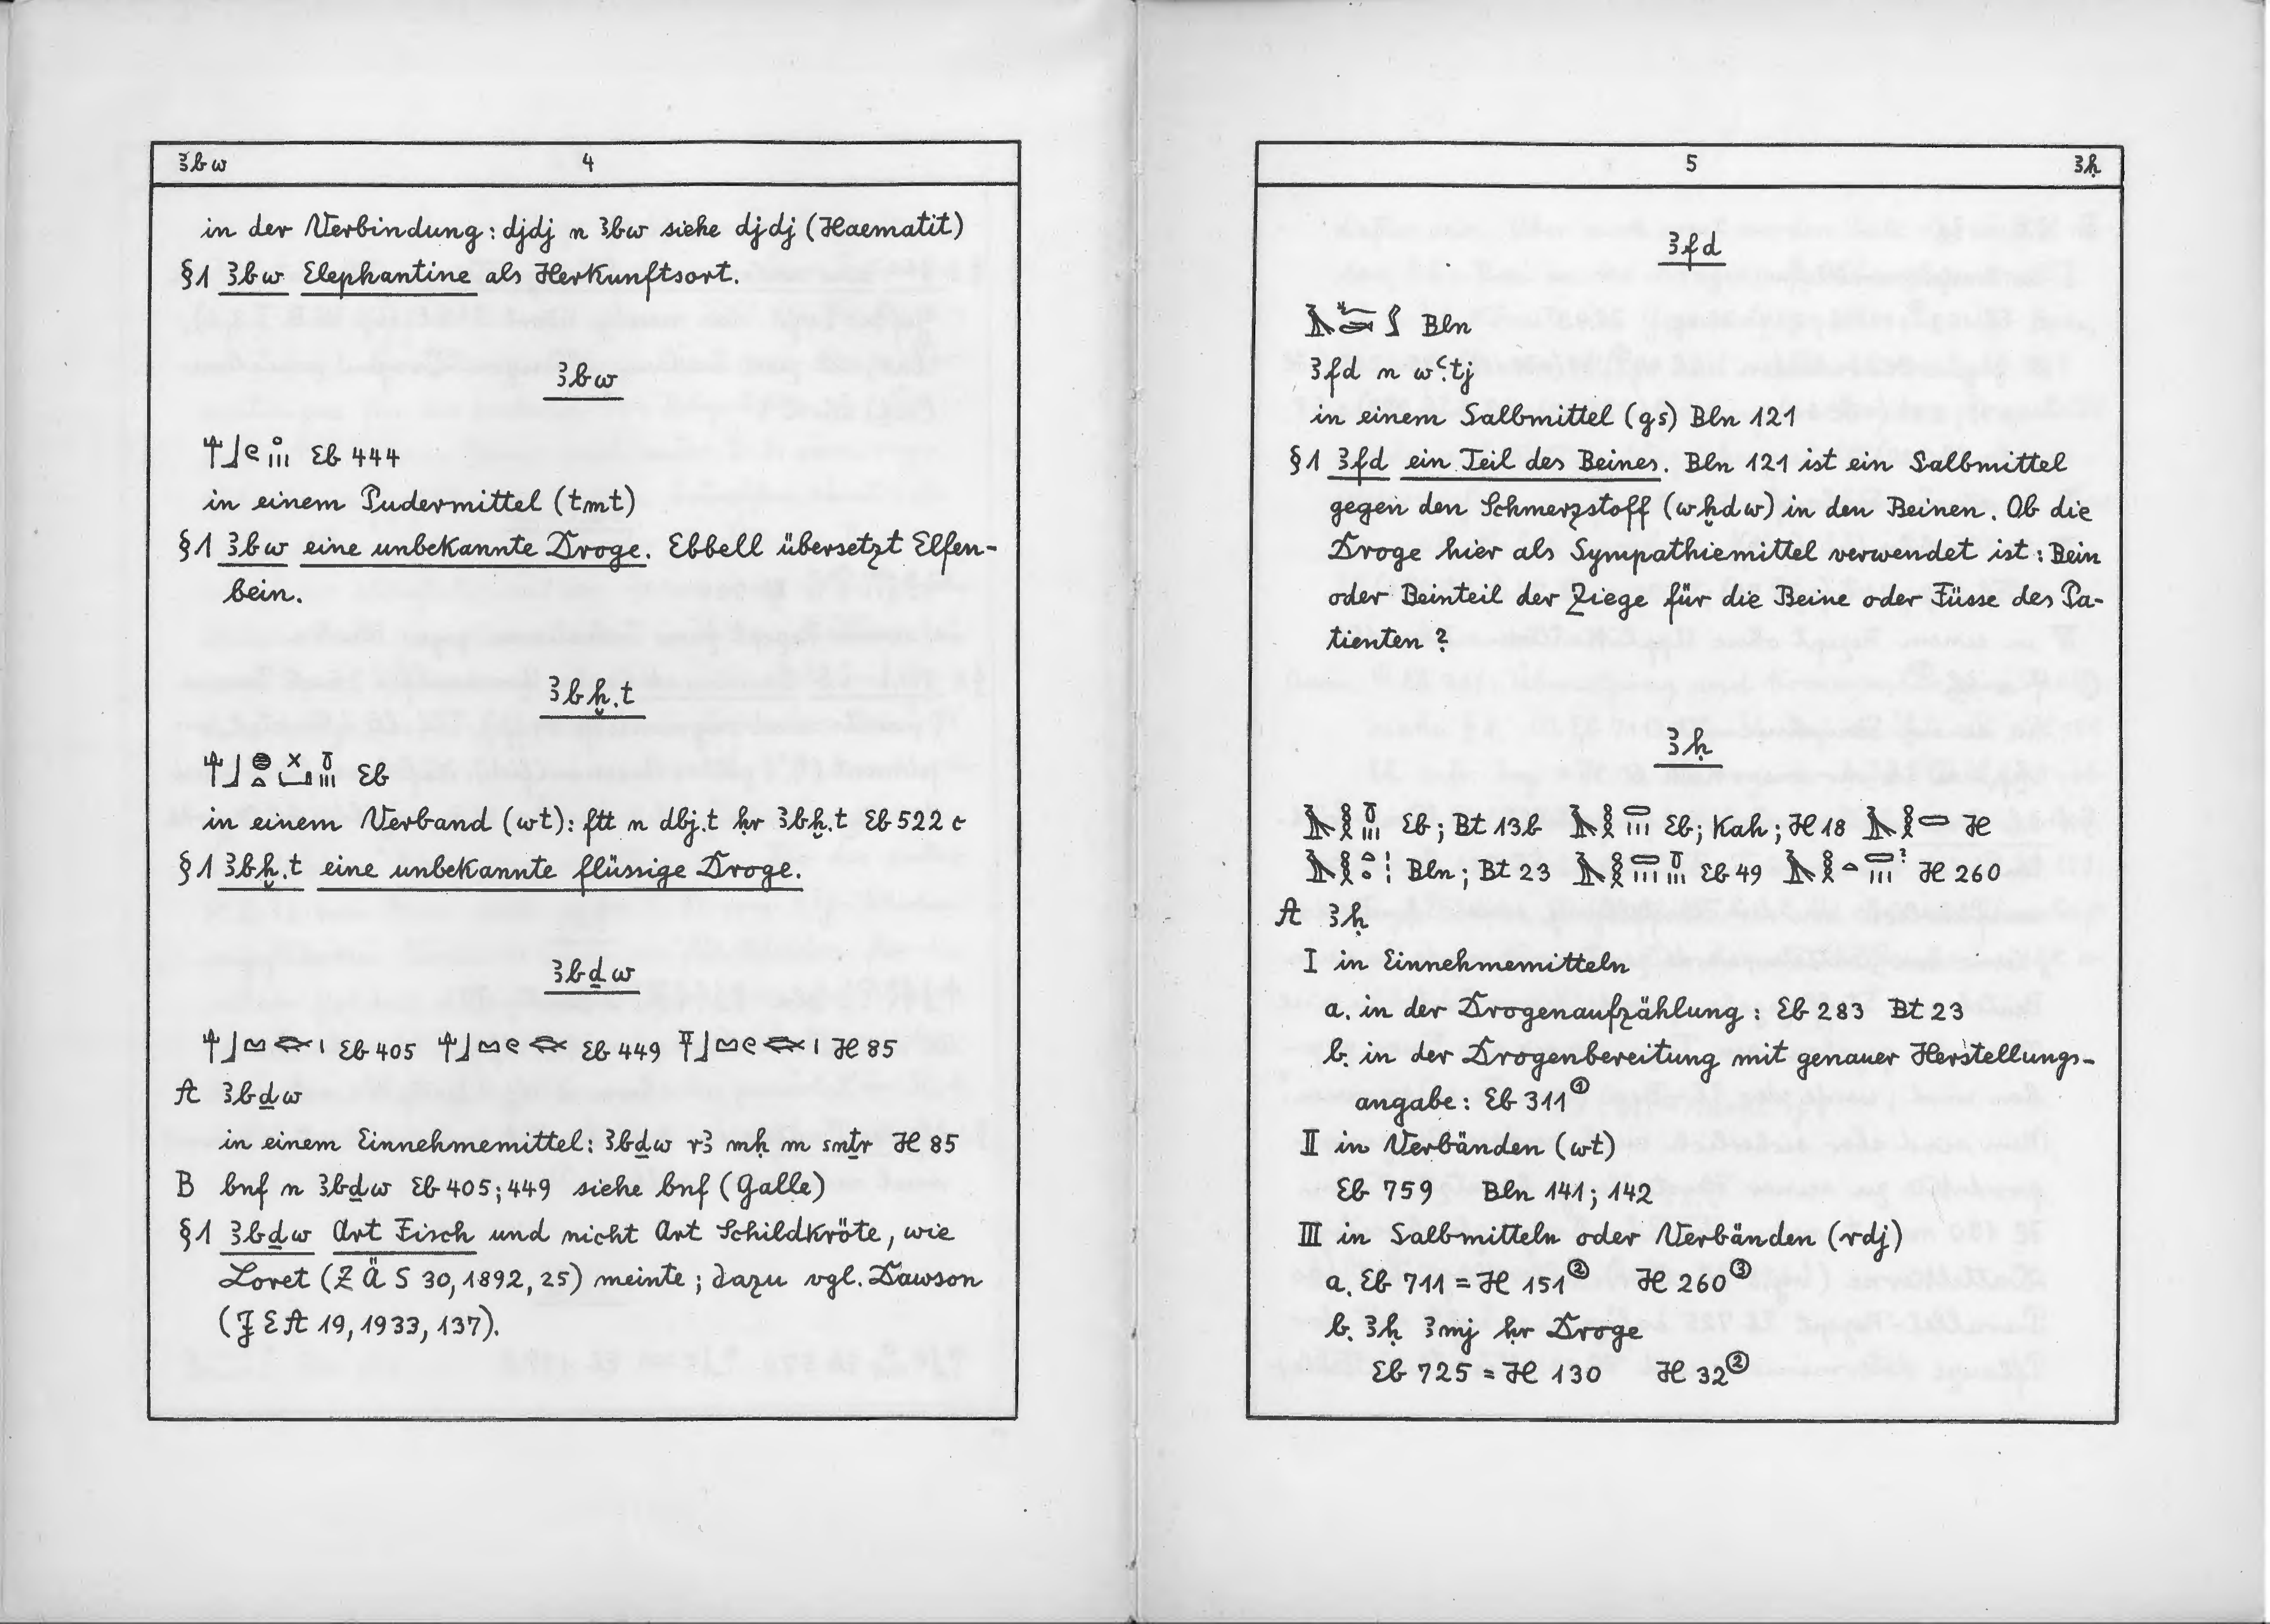 ꜣbw 4
in der Verbindung: djdj n ꜣbw siehe djdj (Haematit)
§1 ꜣbw Elephantine als Herkunftsort.
ꜣbw
Eb 444
in einem Pudermittel (tmt)
§1 ꜣbw eine unbekannte Droge. Ebbell übersetzt Elfen-
bein.
ꜣbḫ.t
Eb
in einem Verband (wt): ftt n dbj.t ḥr ꜣbḫ.t Eb 522 c
§1 ꜣbḫ.t eine unbekannte flüssige Droge.
ꜣbḏw
Eb 405 Eb 449 H 85
A ꜣbḏw
in einem Einnehmemittel: ꜣbḏw rꜣ mḥ m snṯr H 85
B bnf n ꜣbḏw Eb 405; 449 siehe bnf (Galle)
§1 ꜣbḏw Art Fisch und nicht Art Schildkröte, wie
Loret (ZÄS 30, 1892, 25) meinte; dazu vgl. Dawson
(JEA 19, 1933, 137).
5 ꜣḥ
ꜣfd
Bln
ꜣfd n wꜥ.tj
in einem Salbmittel (gs) Bln 121
§1 ꜣfd ein Teil des Beines. Bln 121 ist ein Salbmittel
gegen den Schmerzstoff (wḫdw) in den Beinen. Ob die
Droge hier als Sympathiemittel verwendet ist: Bein
oder Beinteil der Ziege für die Beine oder Füsse des Pa-
tienten?
ꜣḥ
Eb; Bt 13b Eb; Kah; H 18 H
Bln; Bt 23 Eb 49 H 260
A ꜣḥ
I in Einnehmemitteln
a. in der Drogenaufzählung: Eb 283 Bt 23
b. in der Drogenbereitung mit genauer Herstellungs-
angabe: Eb 311①
II in Verbänden (wt)
Eb 759 Bln 141; 142
III in Salbmitteln oder Verbänden (rdj)
a. Eb 711 = H 151② H 260③
b. ꜣḥ ꜣmj ḥr Droge
Eb 725 = H 130 H 32②